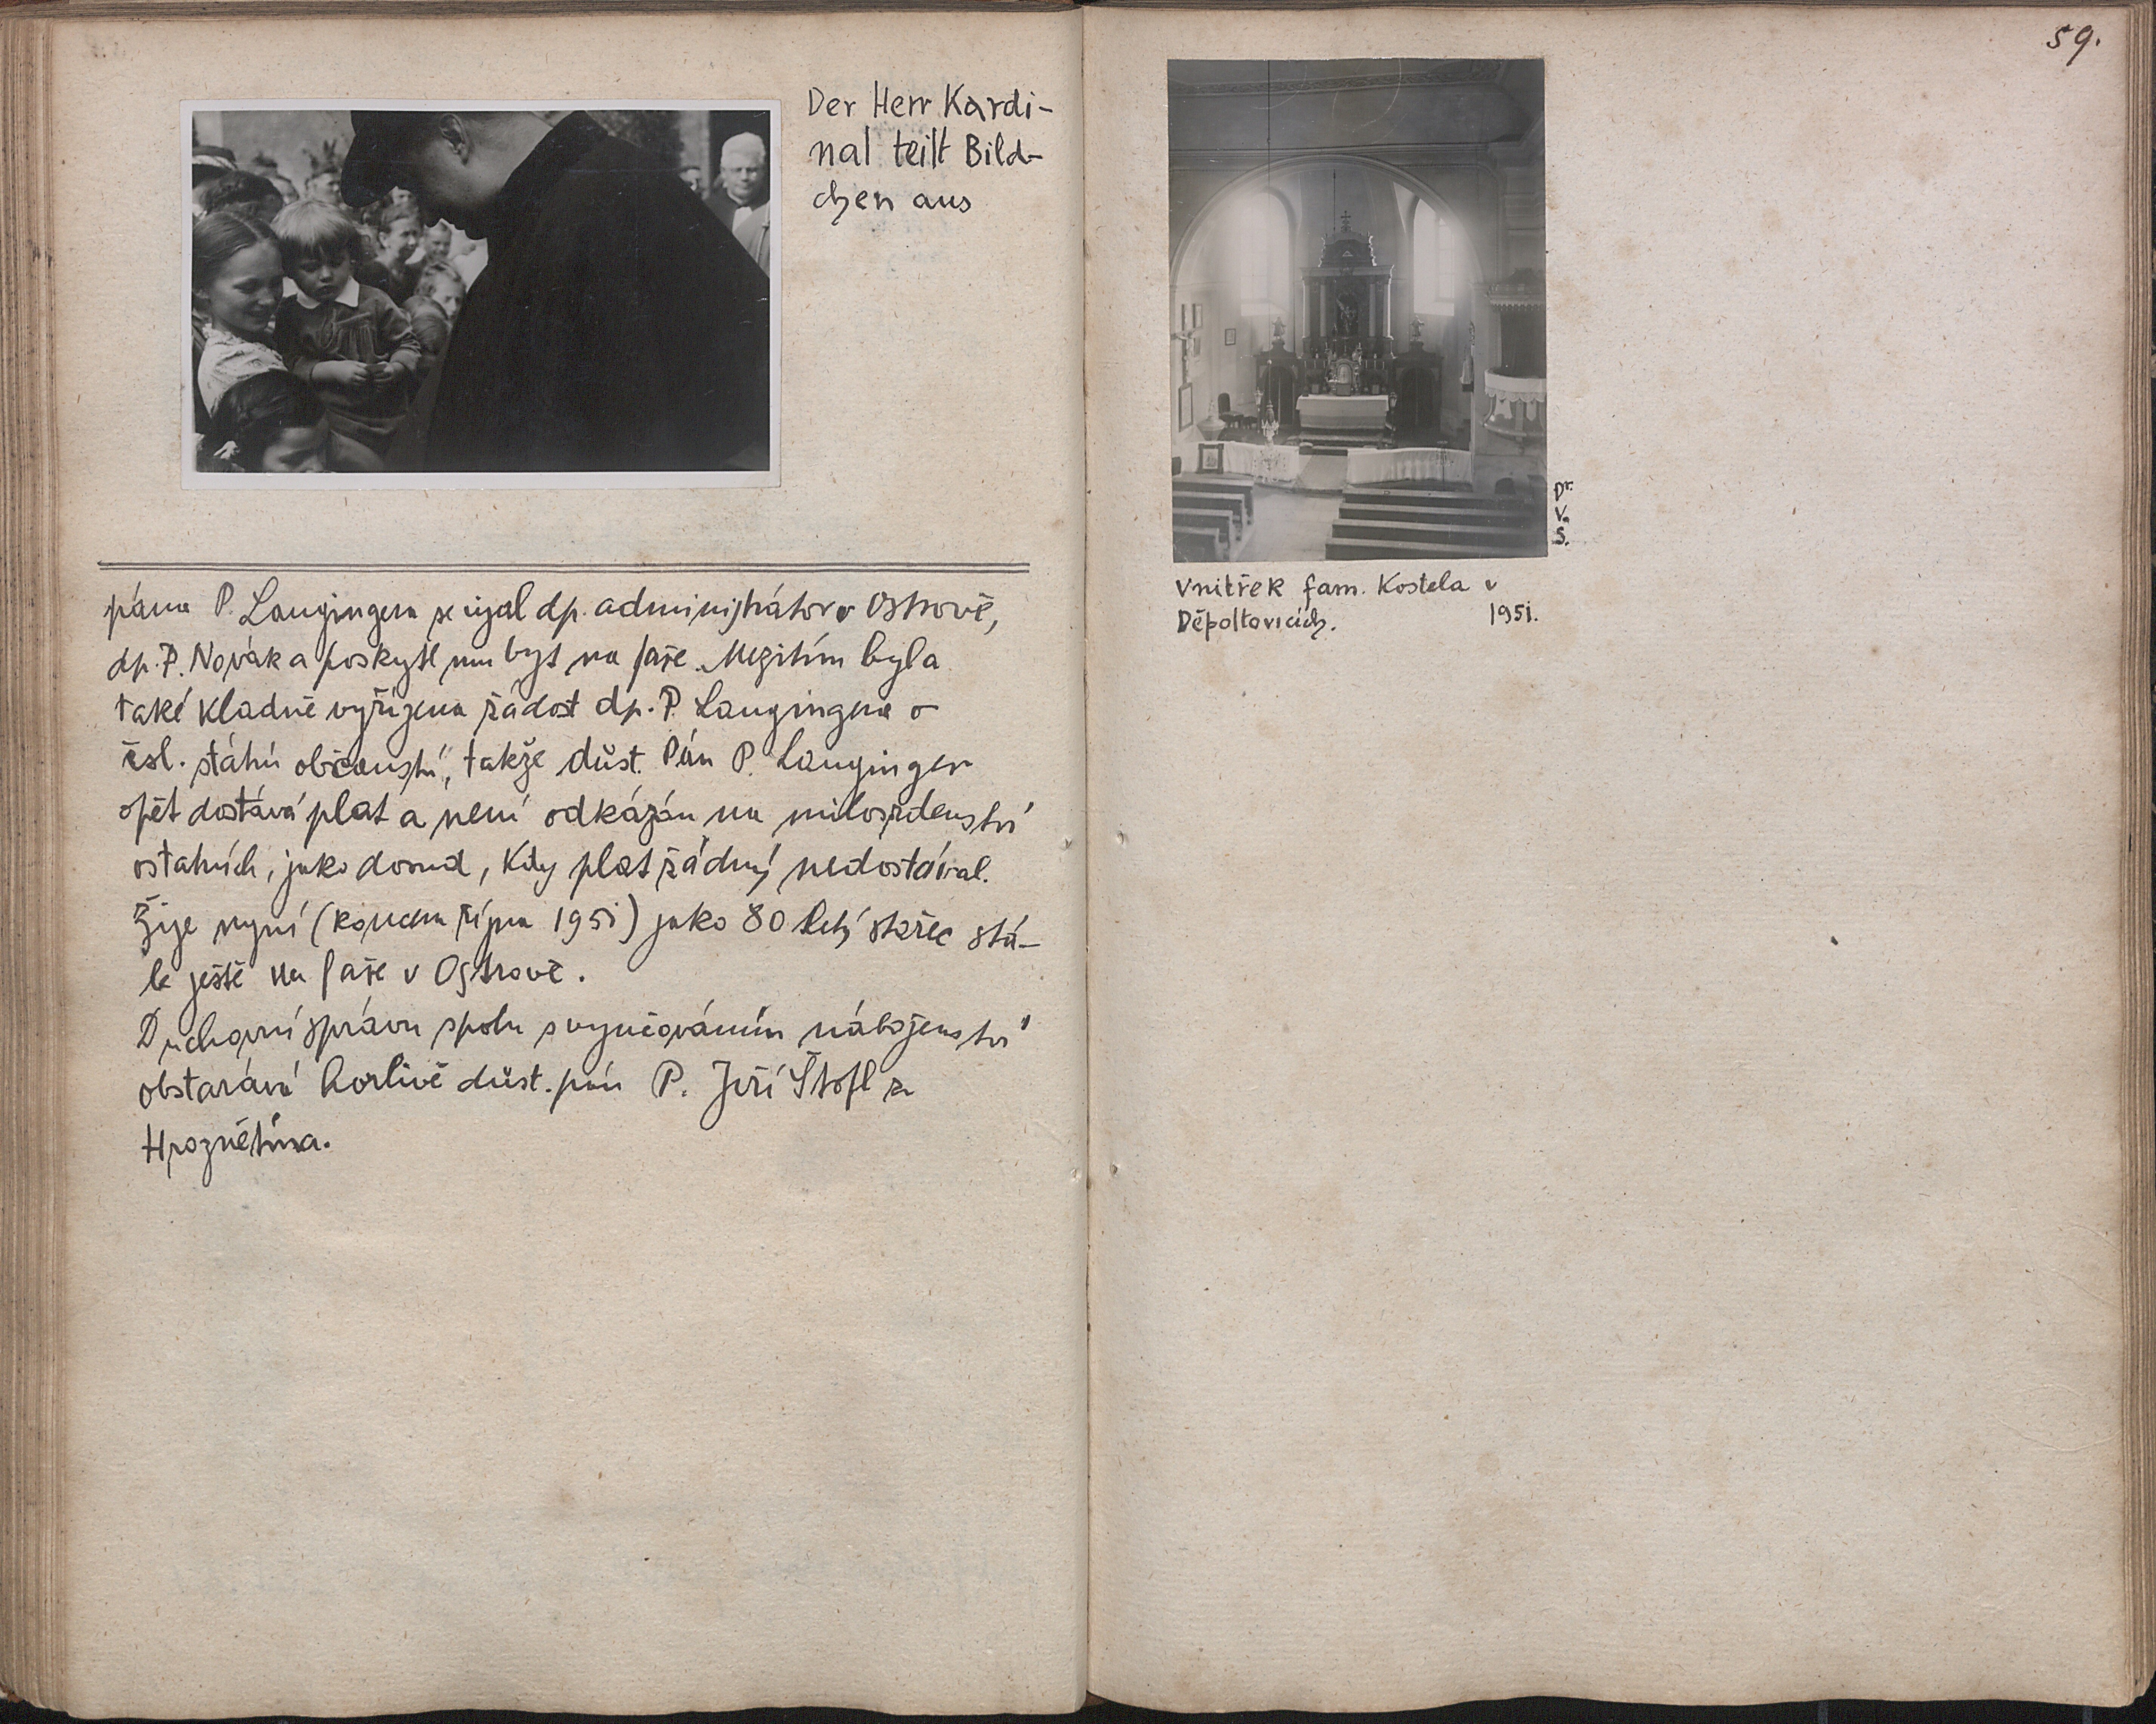 Der Herr Kardi-
nal teilt Bild-
chen aus
pána P. Langingera se ujal dp. administrátor v Ostrově,
dp. P. Novák a poskytl mu byt na faře. Mezitím byla
také kladně vyřízena žádost dp. P. Langingera o
čsl. státní občanství, takže důst. Pán P. Langinger
opět dostává plat a není odkázán na milosrdenství
ostatních, jako dosud, kdy plat žádný nedostával.
Žije nyní (koncem října 1951) jako 80 letý stařec stá-
le ještě na faře v Ostrově.
Duchovní správu spolu s vyučováním náboženství
obstarává horlivě důst. pán P. Jiří Štofl z
Hroznětína.
59.
Dr.
V.
S.
Vnitřek fam. Kostela v
Děpoltovicích. 1951.